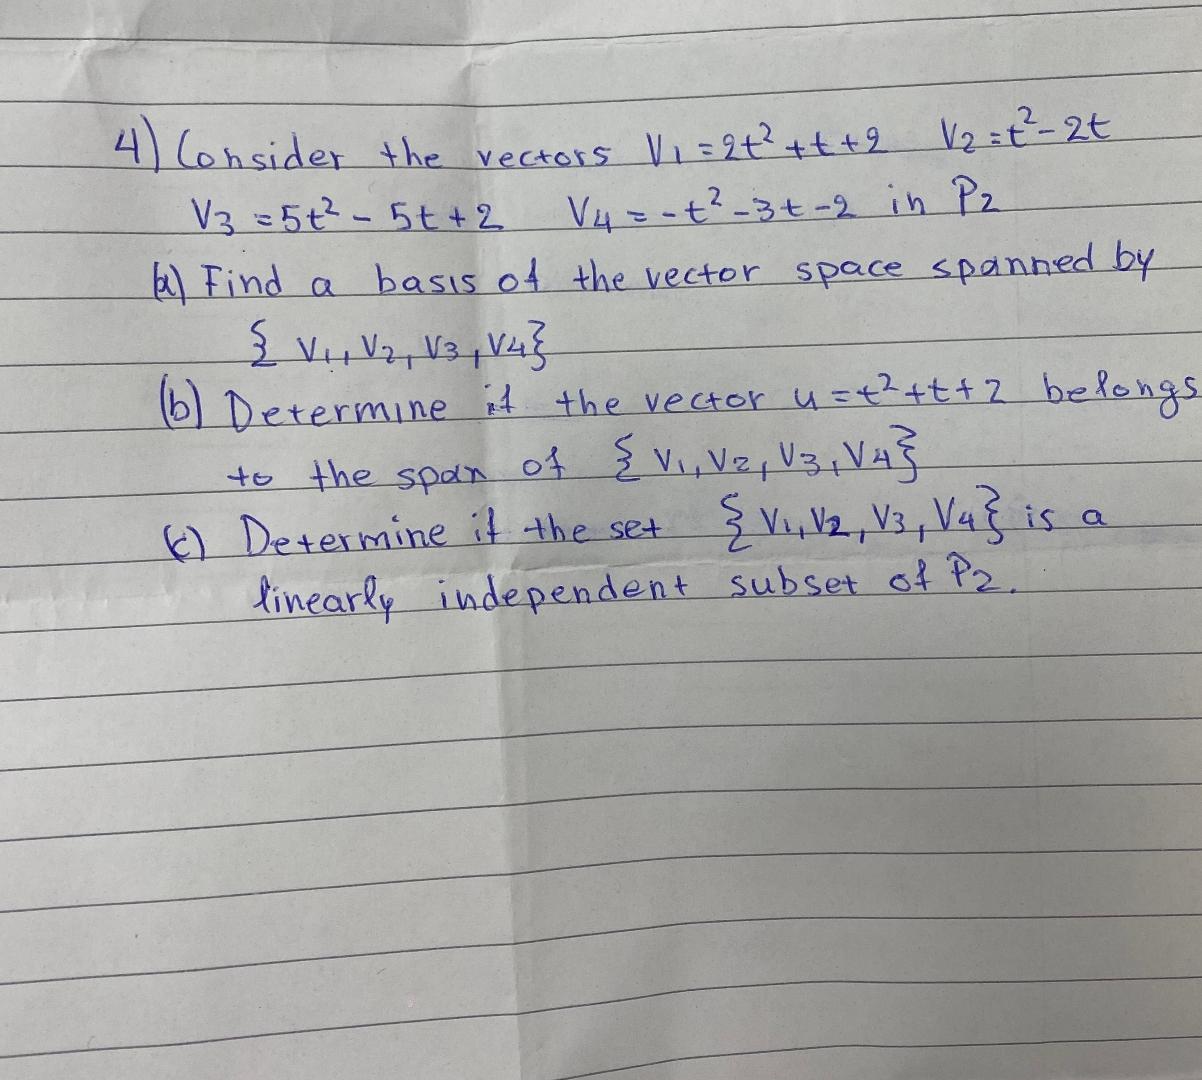 4) Consider the vectors V1 = 2t² + t + 2 V2 = t² - 2t
V3 = 5t² - 5t + 2 V4 = -t² - 3t - 2 in P2
(a) Find a basis of the vector space spanned by
{ V1, V2, V3, V4}
(b) Determine if the vector u = t² + t + 2 belongs
to the span of { V1, V2, V3, V4}
(c) Determine if the set { V1, V2, V3, V4} is a
linearly independent subset of P2.